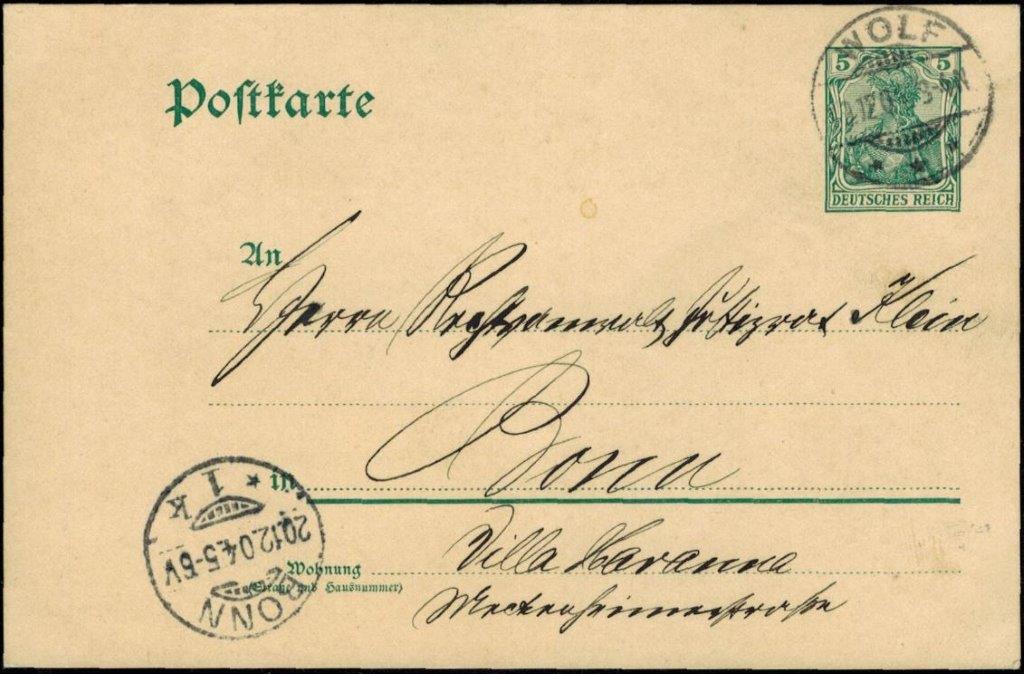 Postkarte
WOLF
5 5
DEUTSCHES REICH
An
Herrn Rechtsanwalt Justizrat Klein
in Bonn
Villa
Wohnung
(Straße und Hausnummer)
Meckenheimerstraße
BONN
20.12.04.5-6V
* 1 K